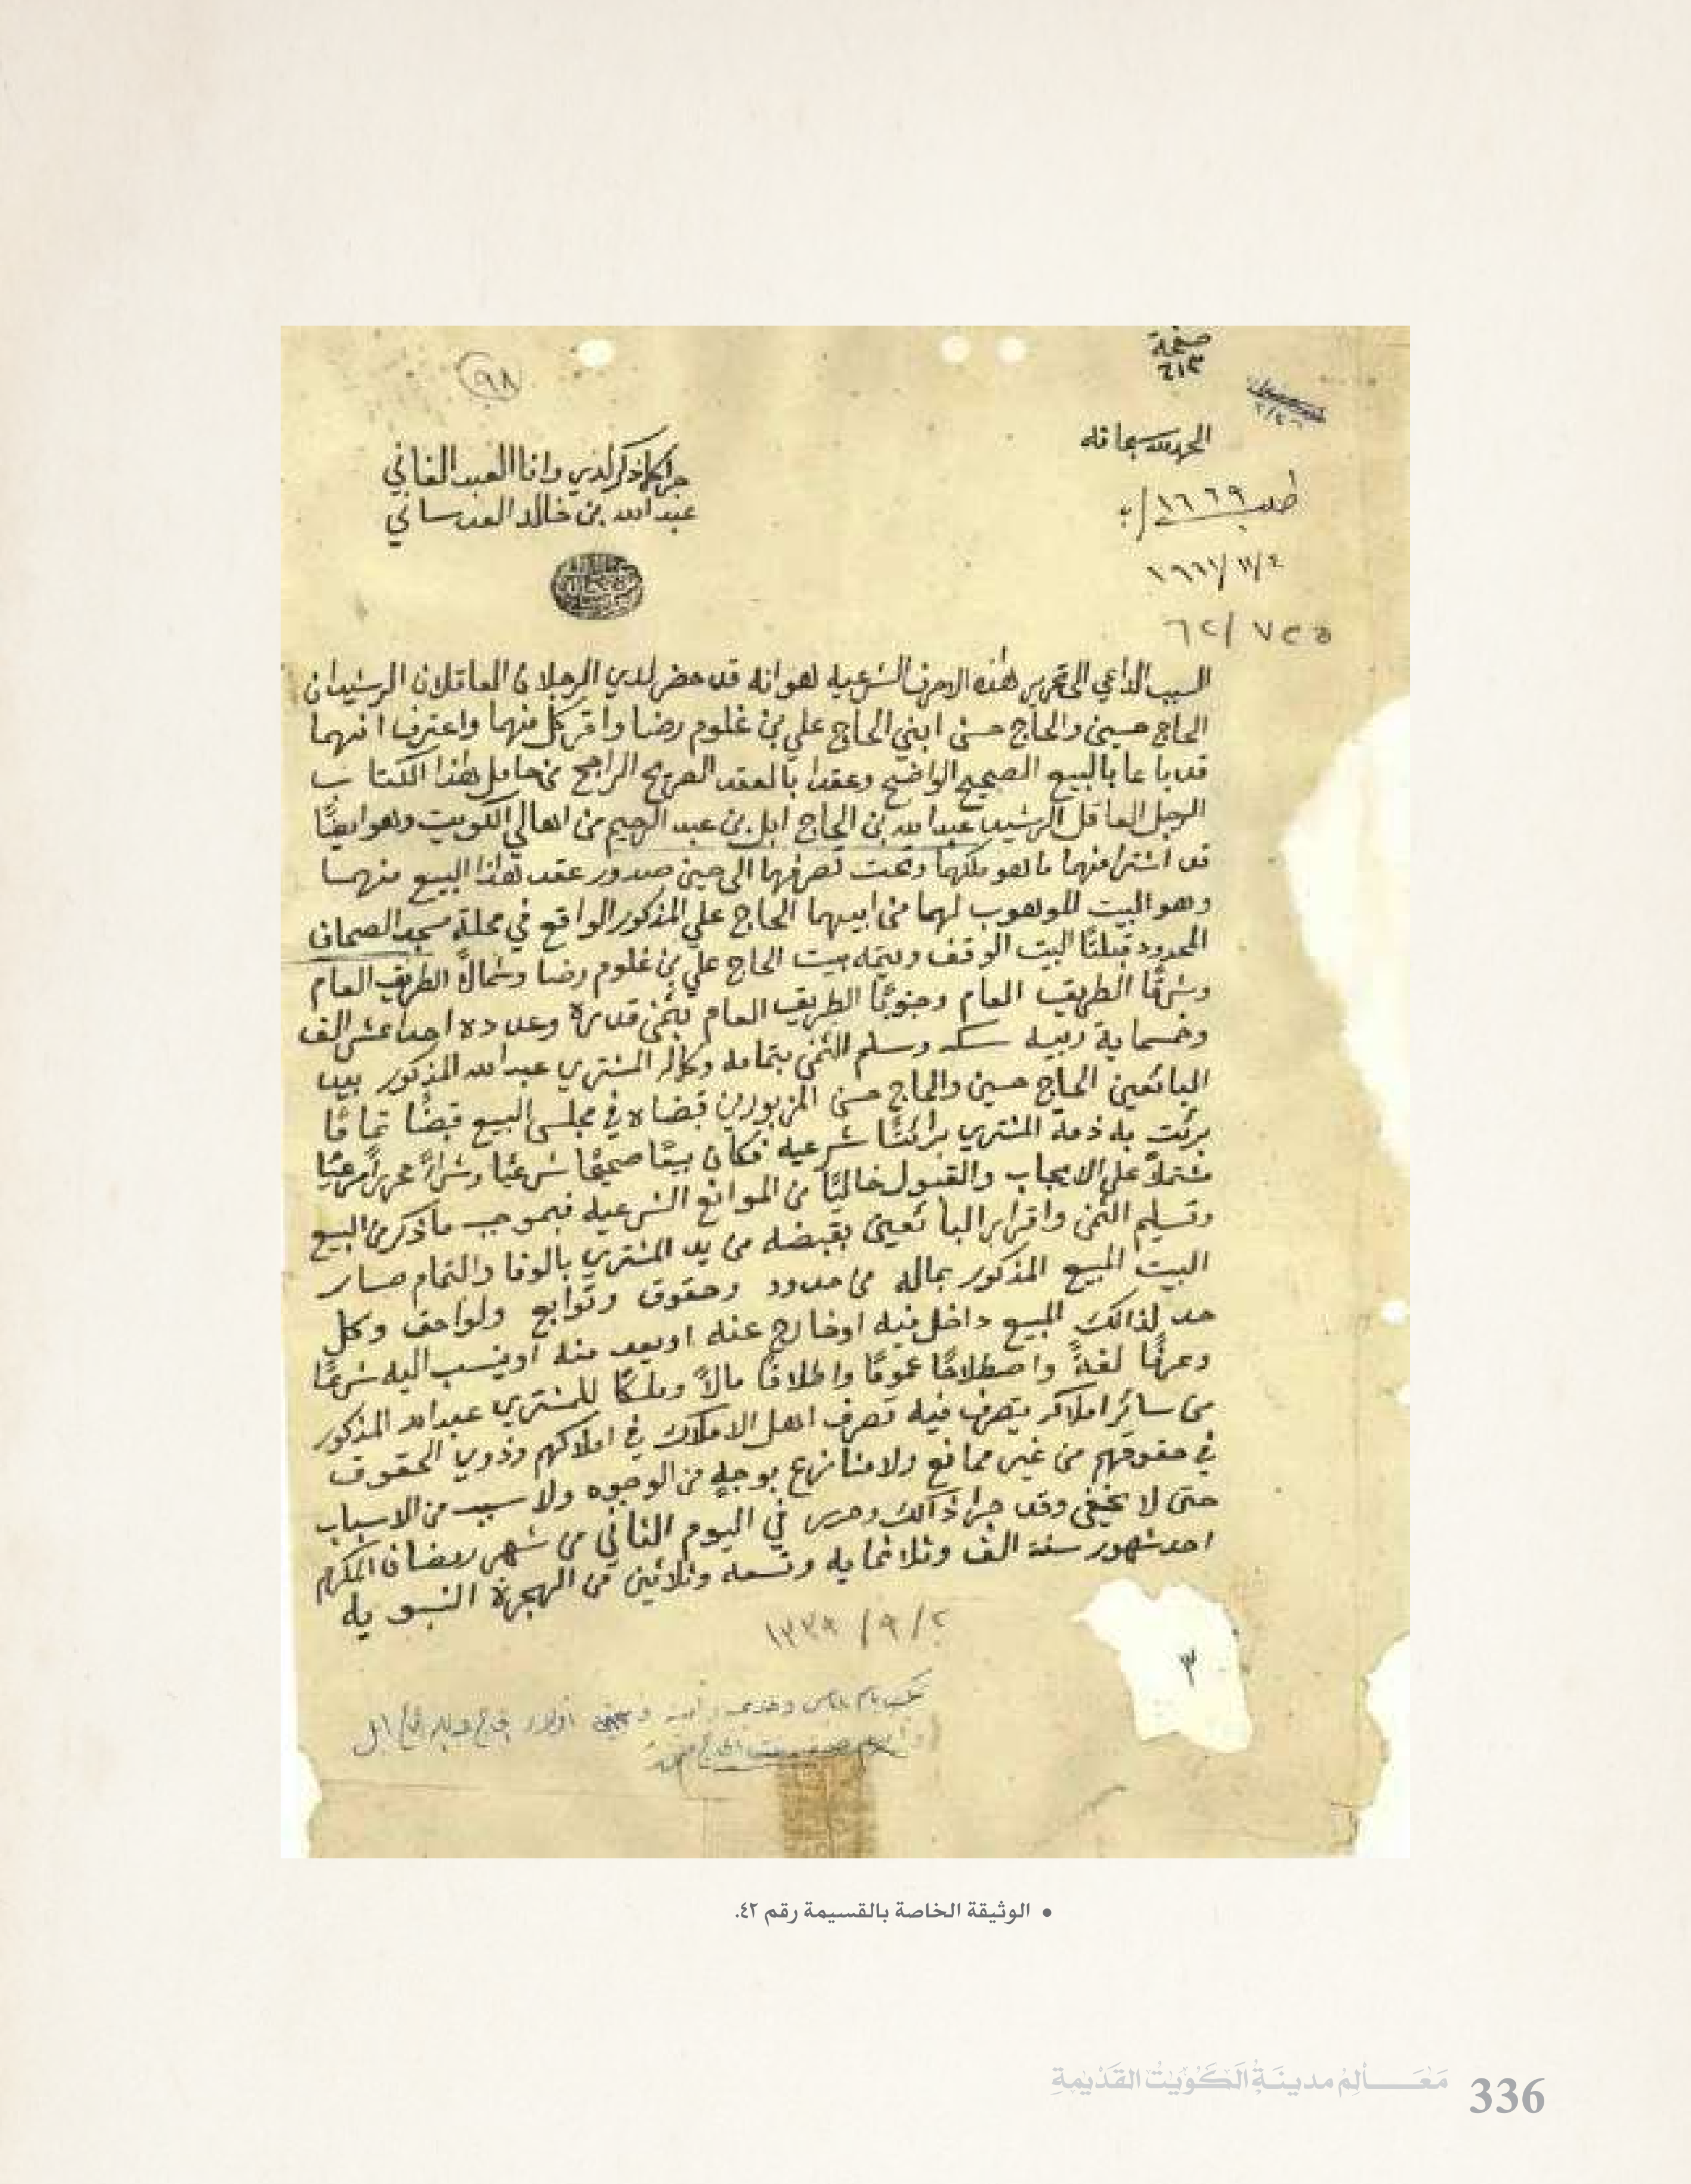 صفحة
٢١٣
٩٨
الحمد لله سبحانه
طلب ١٦٦٩/ب
١٩٦١/١١/٤
٦٢/٧٢٥
جرا كما ذكر لدي وانا العبد الفاني
عبد الله بن خالد العدساني
السبب الداعي الى تحرير هذه الاحرف الشرعيه هو انه قد حضر لدي الرجلان العاقلان الرشيدان
الحاج حسين والحاج حسن ابني الحاج علي بن غلوم رضا واقر كل منهما واعترف انهما
قد باعا بالبيع الصحيح الواضح وعقدا بالعقد الصريح الراجح من حامل هذا الكتاب
الرجل العاقل الرشيد عبد الله بن الحاج ابل بن عبد الرحيم من اهالي الكويت وهو ايضًا
قد اشترا منهما ما هو ملكهما وتحت تصرفهما الى حين صدور عقد هذا البيع منهما
وهو البيت الموهوب لهما من ابيهما الحاج علي المذكور الواقع في محلة مسجد الصحاف
المحدود قبلتًا البيت الوقف ويتمه بيت الحاج علي بن غلوم رضا وشمالاً الطريق العام
وشرقًا الطريق العام وجنوبًا الطريق العام بثمن قدره وعدده احدا عشر الف
وخمسماية ربيه سكه وسلم الثمن بتمامه وكماله المشتري عبد الله المذكور بيد
البائعين الحاج حسين والحاج حسن المزبورين قبضاه في مجلس البيع قبضًا تمامًا
برئت به ذمة المشتري برائتًا شرعيه فكان بيعًا صحيحًا شرعيًا وشراءً محررًا مرعيًا
مشتملاً على الايجاب والقبول خاليًا من الموانع الشرعيه فبموجب ما ذكر من البيع
وتسليم الثمن واقرار البائعين بقبضه من يد المشتري بالوفا والتمام صار
البيت المبيع المذكور بماله من حدود وحقوق وتوابع ولواحق وكل
حد لذالك المبيع داخل فيه او خارج عنه او يعد منه او ينسب اليه شرعًا
وعرفًا لغةً واصطلاحًا عمومًا واطلاقًا مالاً وملكًا للمشتري عبد الله المذكور
من سائر املاكه يتصرف فيه تصرف اهل الاملاك في املاكهم وذوي الحقوق
في حقوقهم من غير ممانع ولا منازع بوجهٍ من الوجوه ولا سبب من الاسباب
حتى لا يخفى وقد جرا ذالك وحرر في اليوم الثاني من شهر رمضان المكرم
احد شهور سنة الف وثلاثمايه وتسعه وثلاثين من الهجرة النبويه
١٣٣٩/٩/٢
٣
• الوثيقة الخاصة بالقسيمة رقم ٤٢.
مَعَالِمُ مدينَةِ الكُوَيْت القَدْيمةِ
336